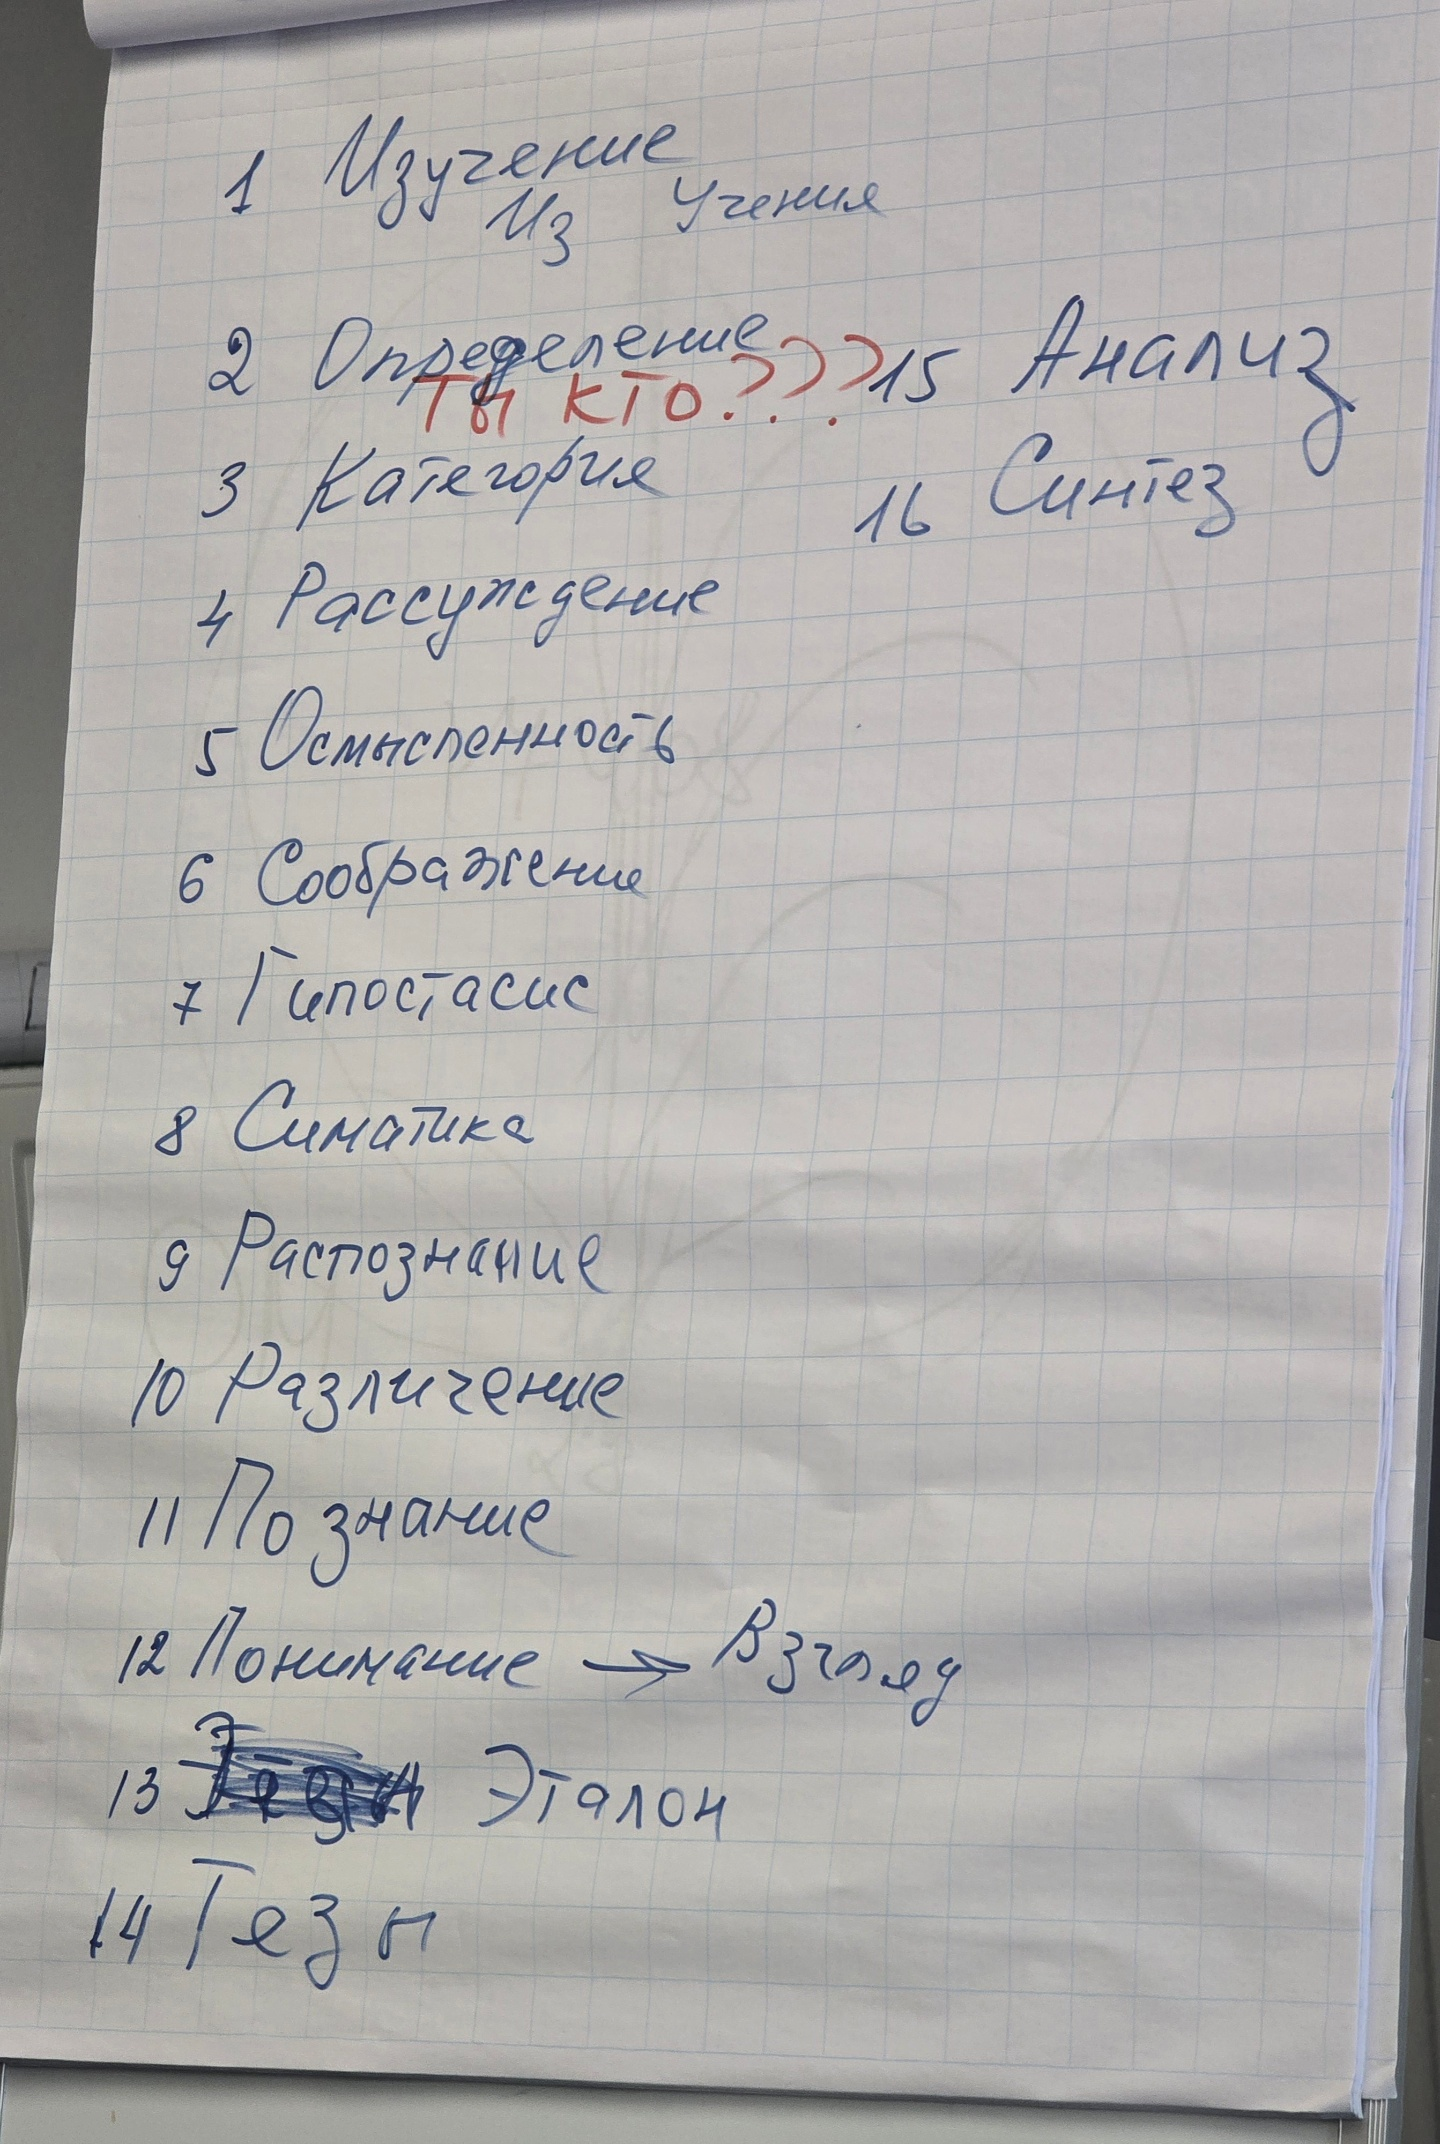 1 Изучение
Из Учения
2 Определение
ТЫ КТО???
3 Категория
4 Рассуждение
5 Осмысленность
6 Соображение
7 Гипостасис
8 Симатика
9 Распознание
10 Различение
11 Познание
12 Понимание → Взгляд
13 Эталон
14 Тезы
15 Анализ
16 Синтез